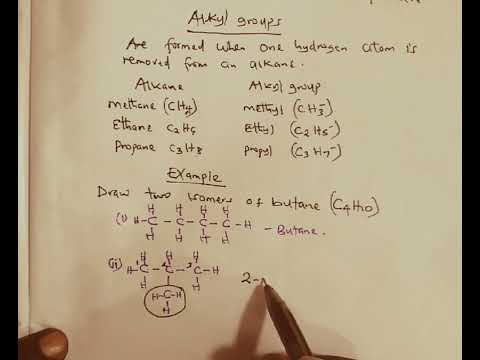 Alkyl groups
Are formed when one hydrogen atom is
removed from an alkane.
Alkane Alkyl group
methane (CH4) methyl (CH3-)
Ethane C2H6 Ethyl (C2H5-)
Propane C3H8 propyl (C3H7-)
Example
Draw two isomers of butane (C4H10)
H H H H
(i) H-C-C-C-C-H - Butane.
H H H H
H H H
(ii) H-1C-2C-3C-H
H H
H-C-H
H
2-